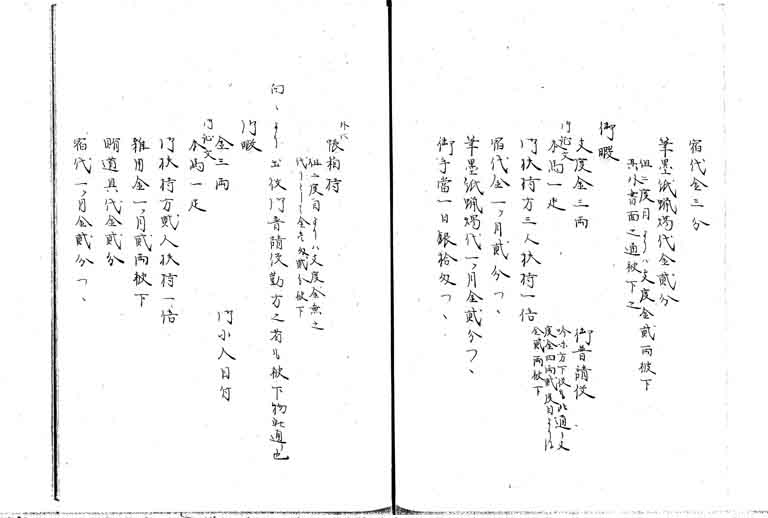 宿代金三分
筆墨紙蝋燭代金貳分
但二度目ゟハ支度金貳両被下
其外書面之通被下之
御暇
支度金三両
御証文
本馬一疋
御扶持方三人扶持一倍
宿代金一ヶ月貳分つゝ
筆墨紙蝋燭代一ヶ月金貳分つゝ
御手当一日銀拾匁つゝ
御普請役
吟味方下役も此通ゝ支
度金四両貳度目ゟは
金貳両被下
張紙
但二度目ゟハ支度金無之
金壱両貳分被下
向ゝゟ出役御普請役勤方之者も被下物此通也
御暇
金三両
御証文
本馬一疋
御小人目付
御扶持方貳人扶持一倍
雑用金一ヶ月貳両被下
明道具代金貳分
宿代一ヶ月金貳分つゝ